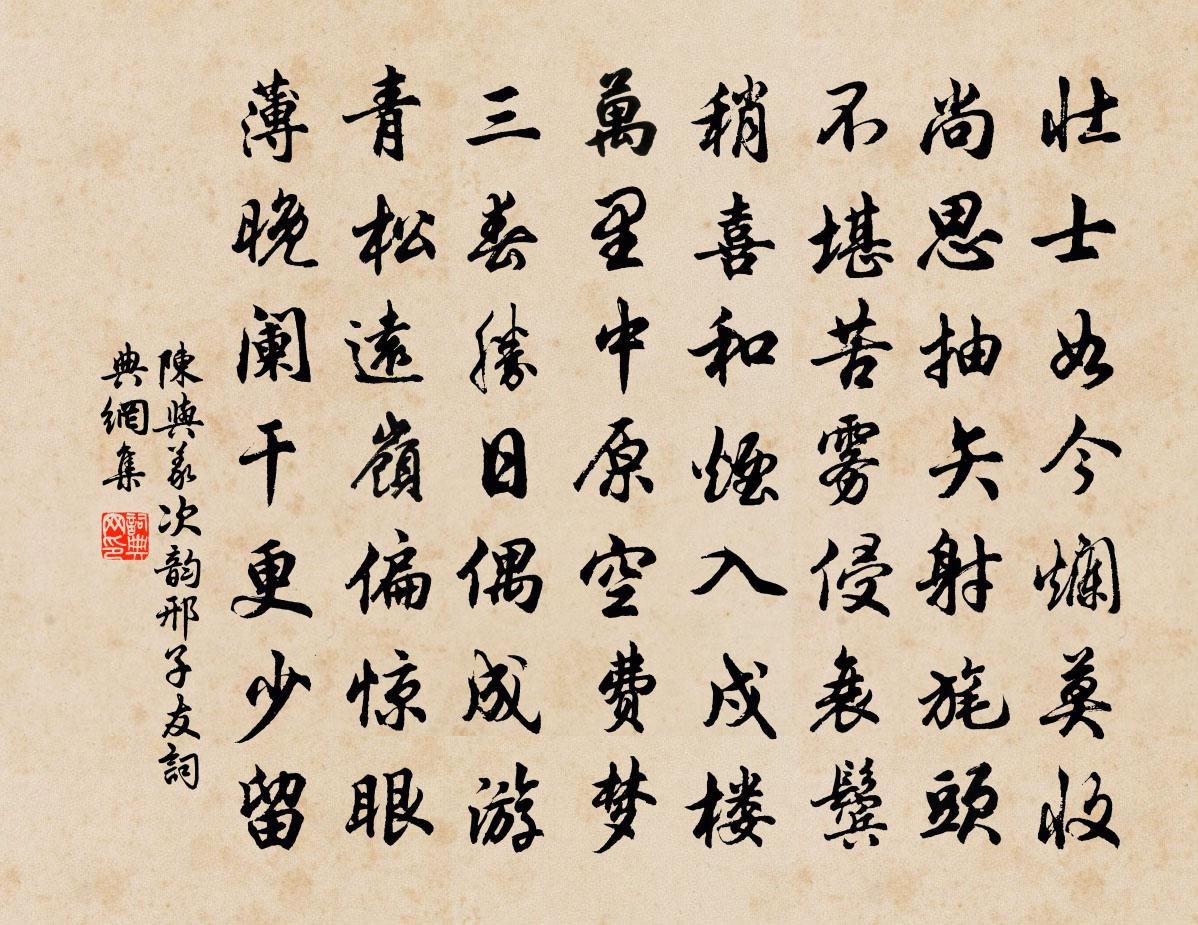 壮士如今爛莫收
尚思抽矢射旄頭
不堪苦雾侵衰鬓
稍喜和煙入戍楼
萬里中原空费梦
三春勝日偶成游
青松遠嶺偏惊眼
薄晚阑干更少留
陳與義次韵邢子友詞
典網集
詞典网印